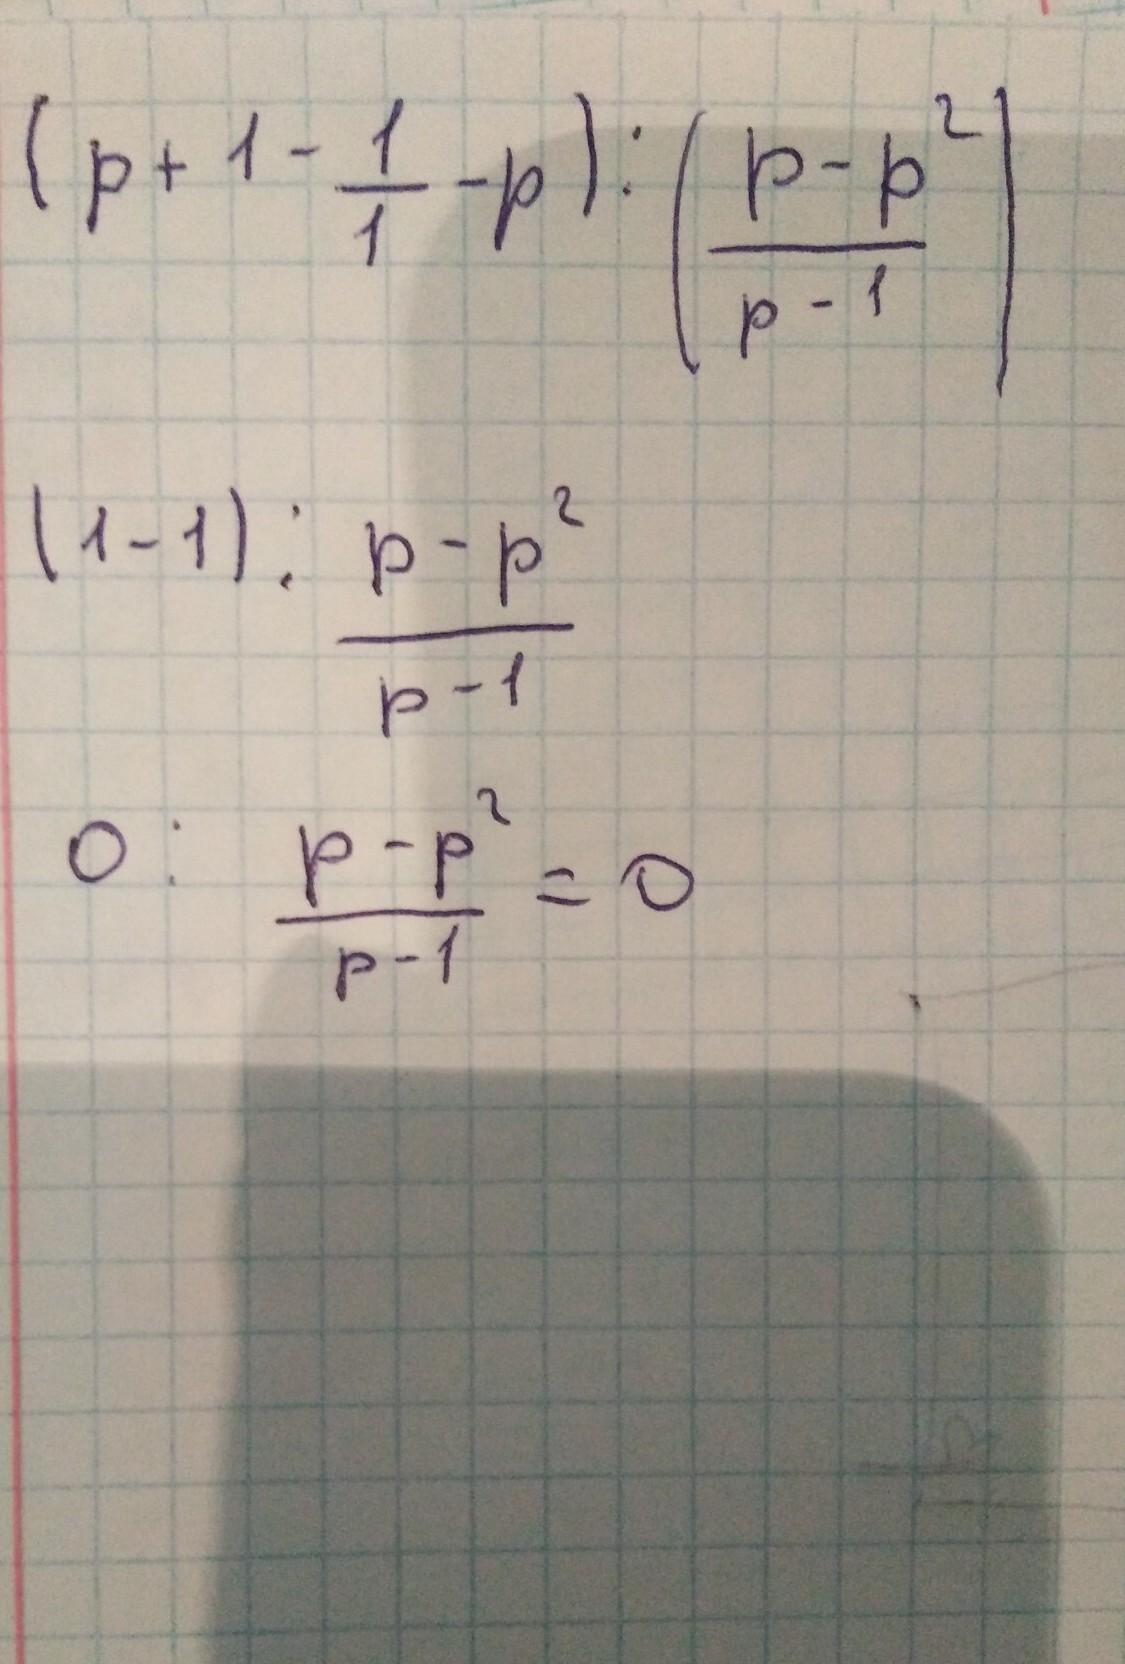 (p + 1 - 1/1 - p) : (p - p²/p - 1)
(1 - 1) : p - p²/p - 1
0 : p - p²/p - 1 = 0